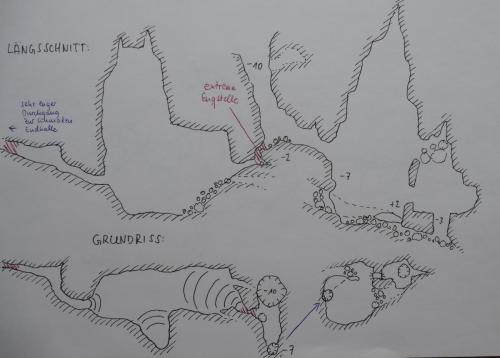 LÄNGSSCHNITT:
-10
extreme
Engstelle
sehr enger
Durchgang
zur schönsten
Endhalle
-2
-7
+2
-3
GRUNDRISS:
-10
-7